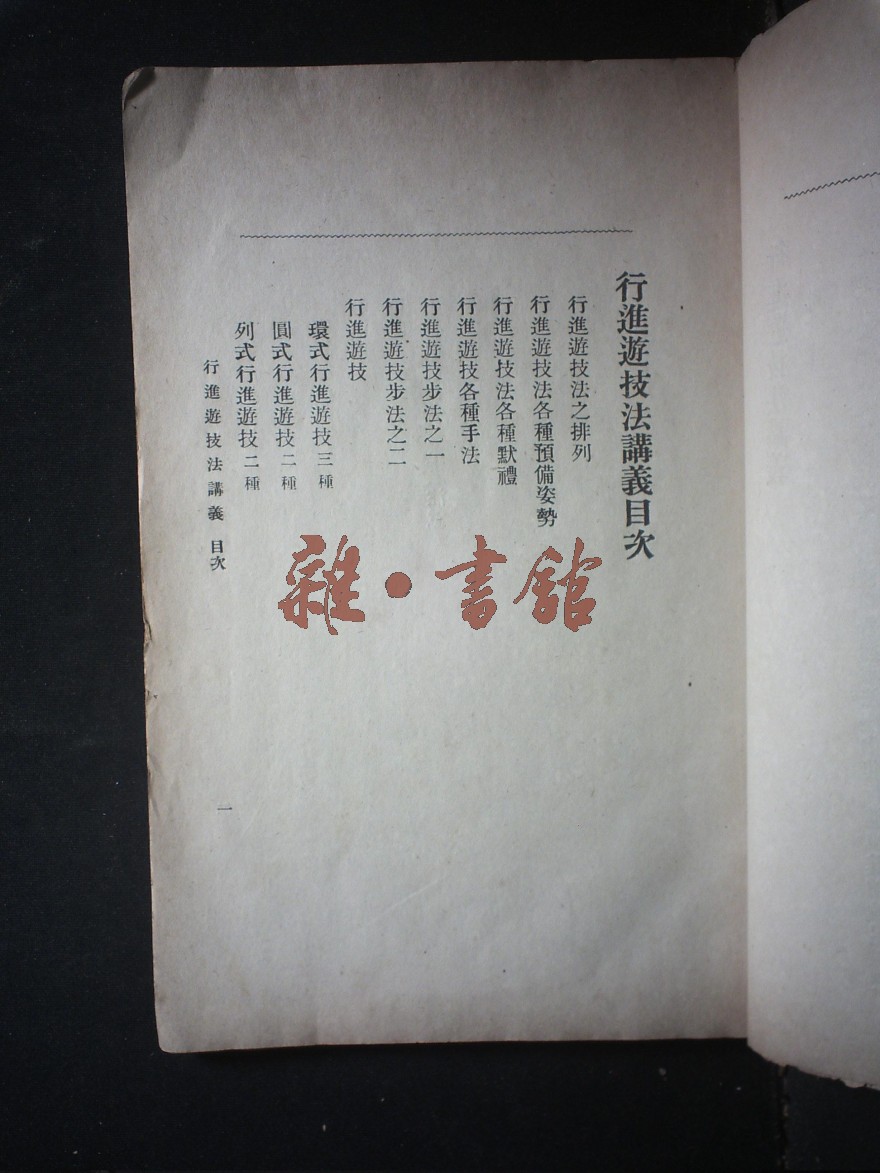 行進遊技法講義目次
行進遊技法之排列
行進遊技法各種預備姿勢
行進遊技法各種默禮
行進遊技各種手法
行進遊技步法之一
行進遊技步法之二
行進遊技
環式行進遊技三種
圓式行進遊技二種
列式行進遊技二種
行進遊技法講義 目次
一
雜•書館